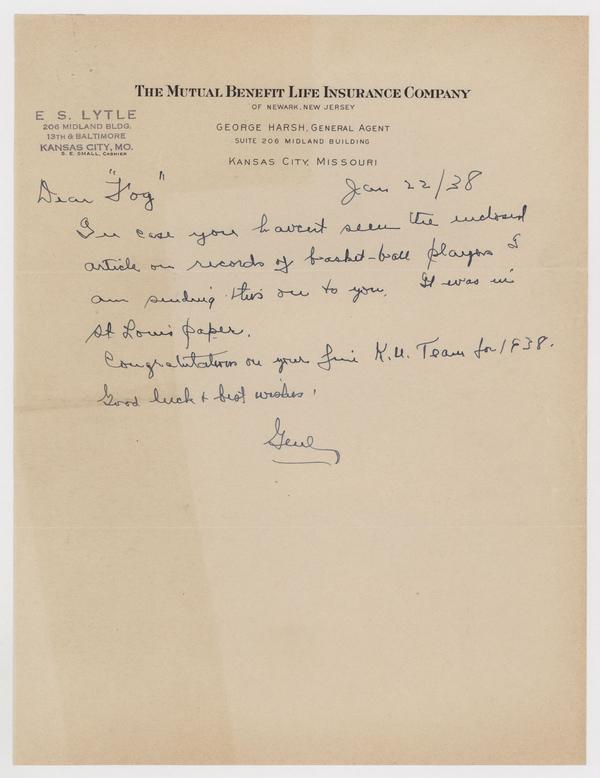 THE MUTUAL BENEFIT LIFE INSURANCE COMPANY
OF NEWARK, NEW JERSEY
E S. LYTLE
206 MIDLAND BLDG.
13TH & BALTIMORE
KANSAS CITY, MO.
S. E. SMALL, CASHIER
GEORGE HARSH, GENERAL AGENT
SUITE 206 MIDLAND BUILDING
KANSAS CITY, MISSOURI
Jan 22/38
Dear "Fog"
In case you haven't seen the enclosed
article on records of basket-ball players I
am sending this on to you. It was in
St Louis paper.
Congratulations on your fine K.U. Team for 1938.
Good luck & best wishes!
Gene